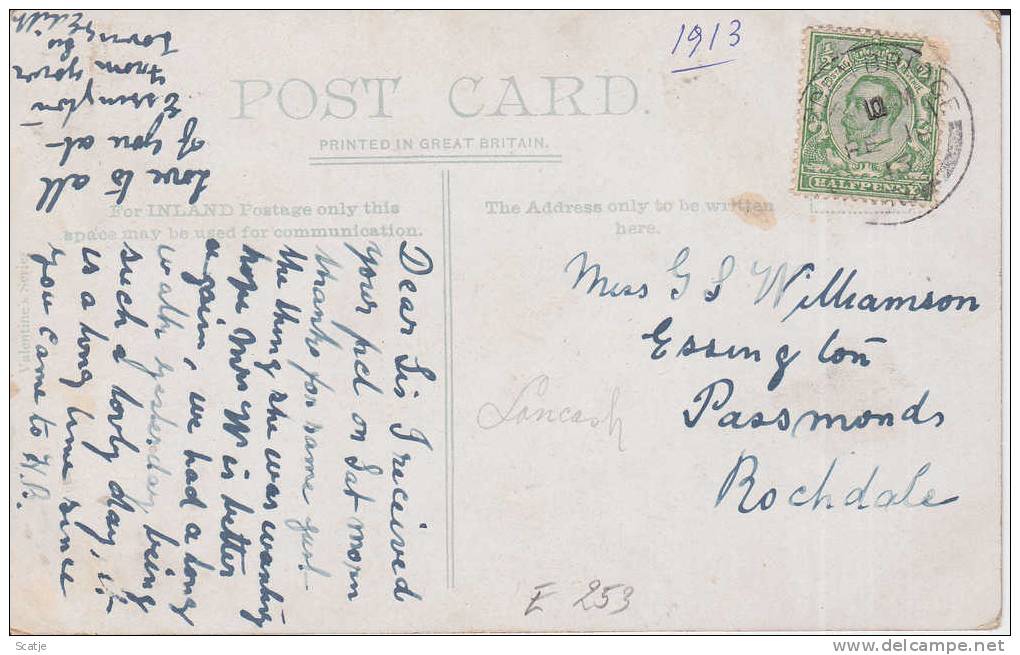 1913
POST CARD.
PRINTED IN GREAT BRITAIN.
HALFPENNY
BRIDGE
For INLAND Postage only this
space may be used for communication.
The Address only to be written
here.
Valentine's Series
Dear Sis I received
your pcd on Sat morn
thanks for name just
the thing she was wanting
hope Mrs is better
again, we had a long
walk yesterday being
such a lovly day, it
is a long time since
you came to H.B.
Love to all
of you at
Essington
from your
loving
Edith
Miss G S Williamson
Essington
Passmonds
Rochdale
Lancash
E 253
Scatje
delcampe.net